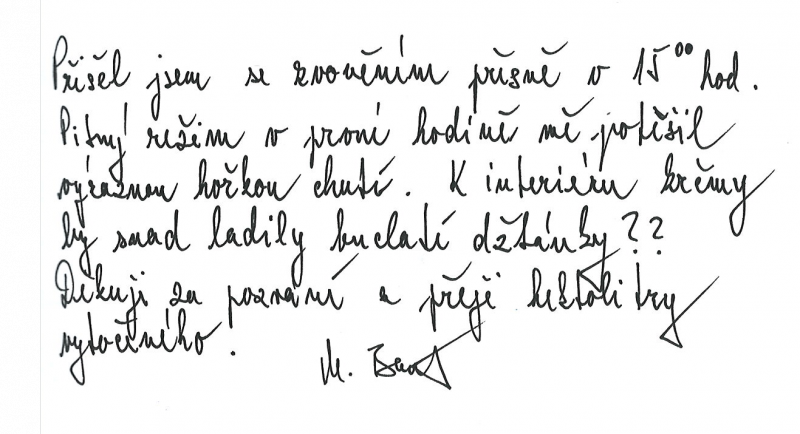 Přišel jsem se zvoněním přísně v 15⁰⁰ hod.
Pitný režim v první hodině mě potěšil
výraznou hořkou chutí. K interiéru krčmy
by snad ladily buclatí džbánky??
Děkuji za pozvání a přeji hektolitry
vytočeného.
M.